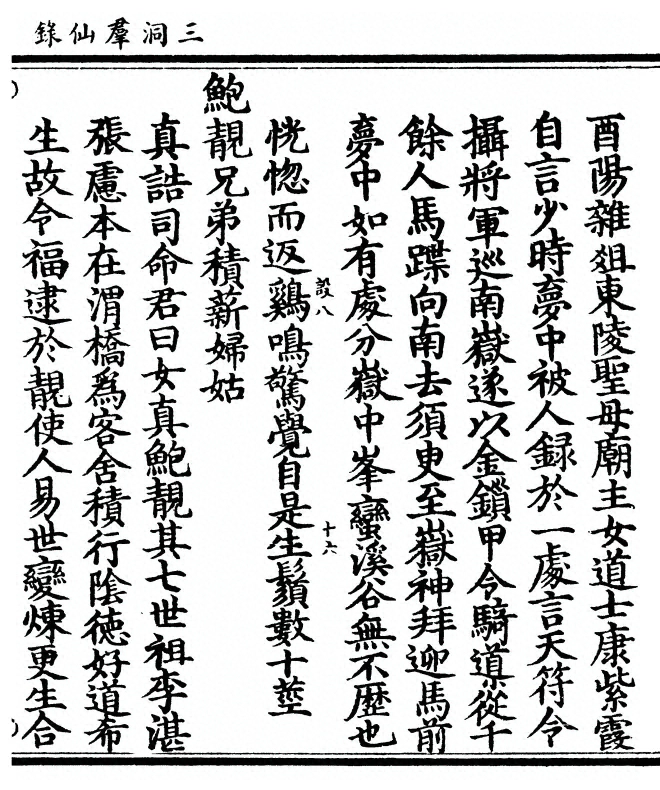 三洞羣仙錄
酉陽雜俎東陵聖母廟主女道士康紫霞
自言少時夢中被人録於一處言天符令
攝將軍巡南嶽遂以金鎻甲令騎導從千
餘人馬蹀向南去須臾至嶽神拜迎馬前
夢中如有處分嶽中峯巒溪谷無不歷也
恍惚而返鷄鳴驚覺自是生鬚數十莖
設八
十六
鮑靚兄弟積薪婦姑
真誥司命君曰女真鮑靚其七世祖李湛
張慮本在渭橋爲客舍積行陰德好道希
生故令福逮於靚使人易世變煉更生合